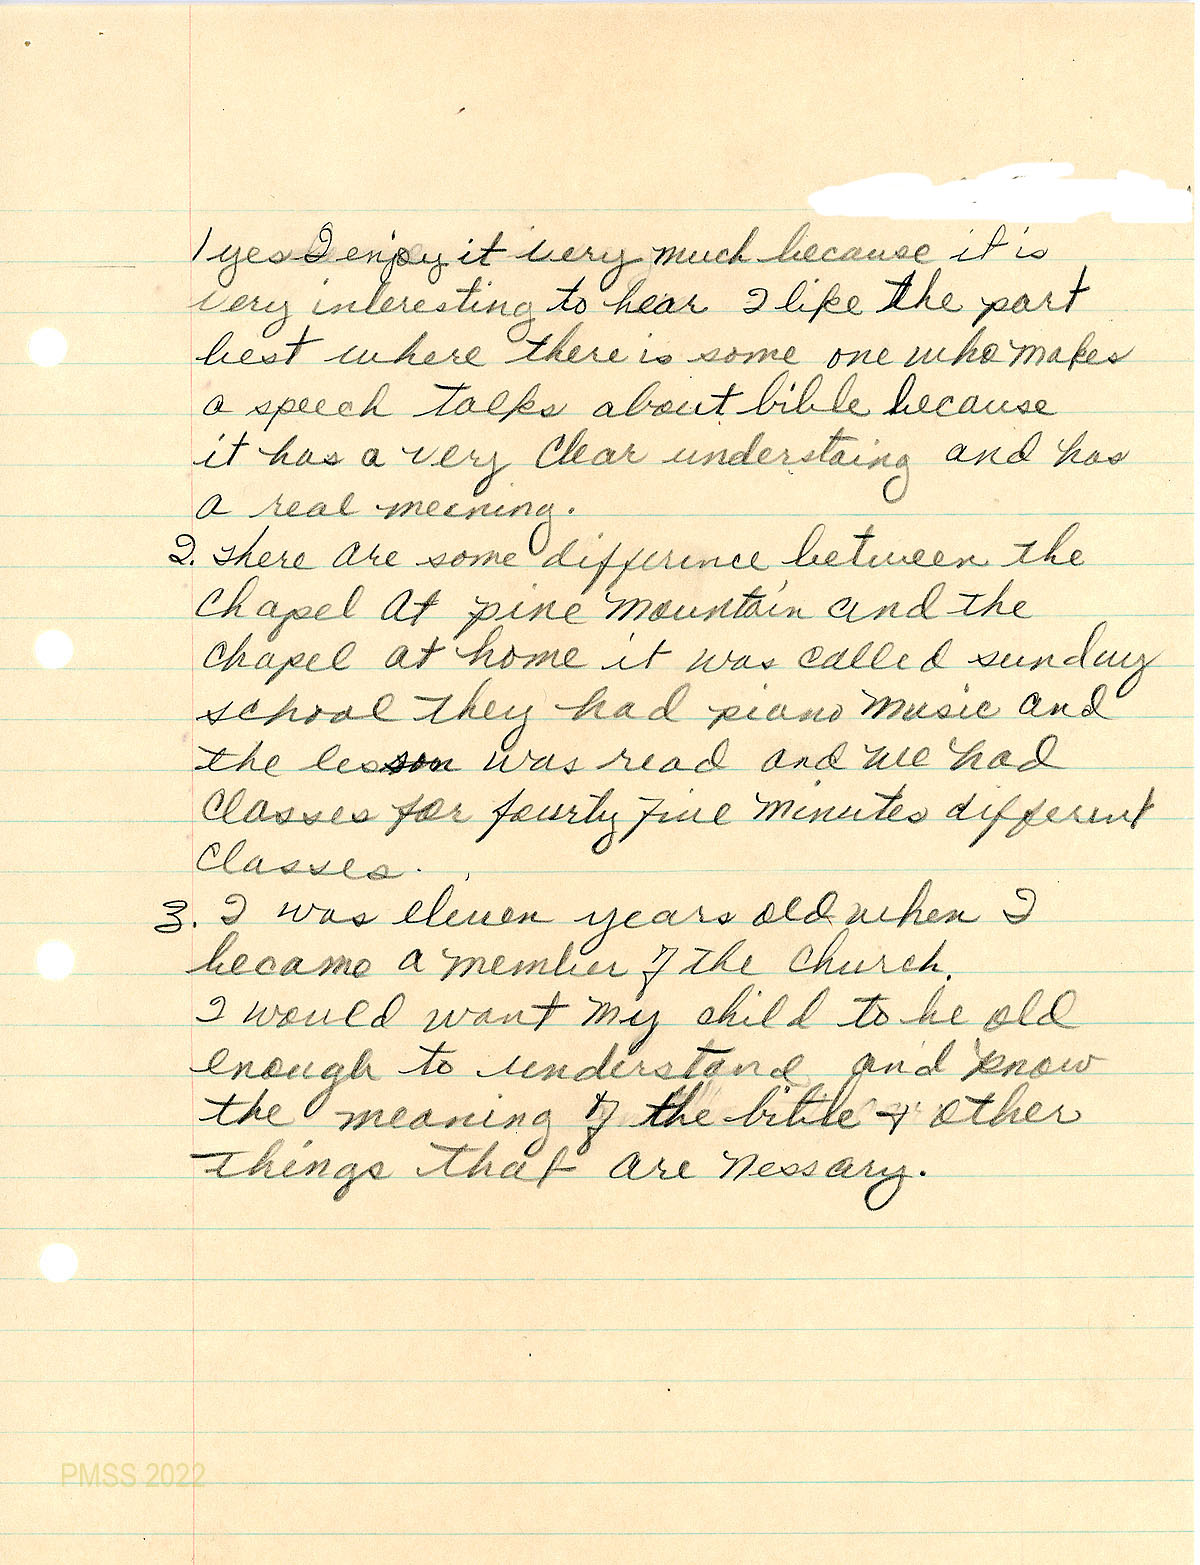 1 yes I enjoy it very much because it is
very interesting to hear I like the part
best where there is some one who makes
a speech talks about bible because
it has a very Clear understaing and has
a real meening.
2. There are some difference between the
Chapel At pine Mountain and the
Chapel at home it was called sunday
school they had piano music and
the lesson was read and we had
Classes for fourty five minutes different
Classes.
3. I was eleven years old when I
became a member of the Church.
I would want my child to be old
enough to understand and know
the meaning of the bible & other
Things that are nessary.
PMSS 2022